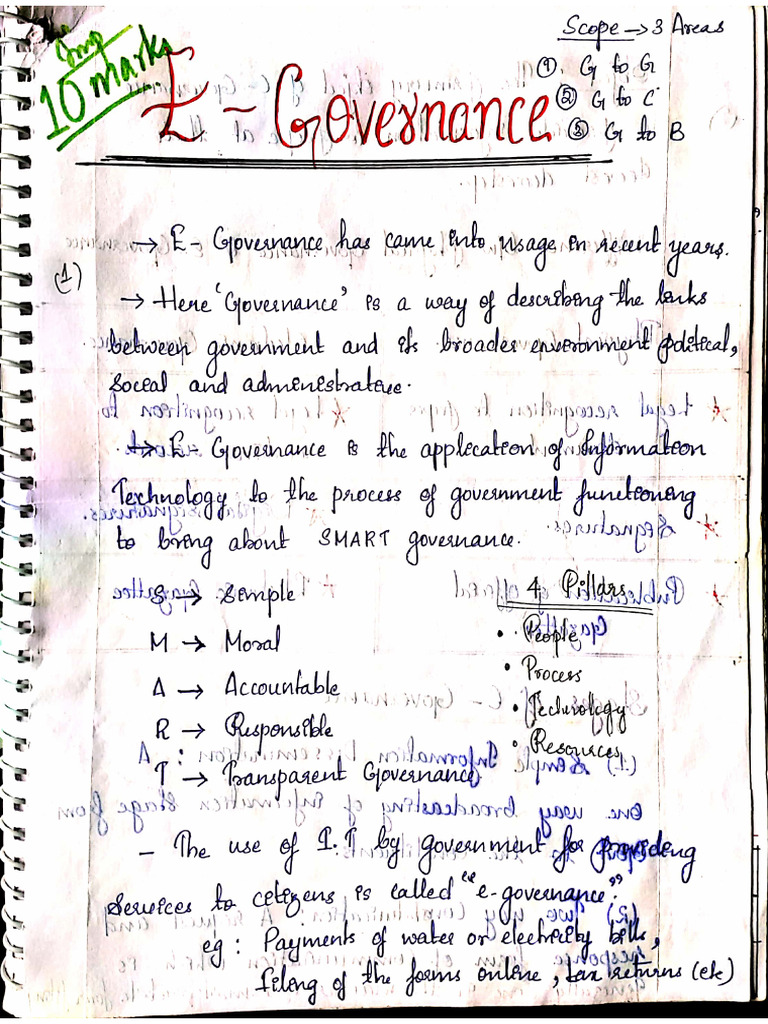 Img
10 marks
Scope → 3 Areas
① G to G
② G to C
③ G to B
E - Governance
(1)
→ E - Governance has came into usage in recent years.
→ Here 'Governance' is a way of describing the links
between government and its broader environment political,
social and administrative.
→ E - Governance is the application of Information
Technology to the process of government functioning
to bring about SMART governance.
S → Simple
M → Moral
A → Accountable
R → Responsible
T → Transparent Governance
4 Pillars
• People
• Process
• Technology
• Resources
- The use of I.T by government for providing
services to citizens is called "e-governance."
eg : Payments of water or electricity bills,
filing of the forms online, tax returns (etc)